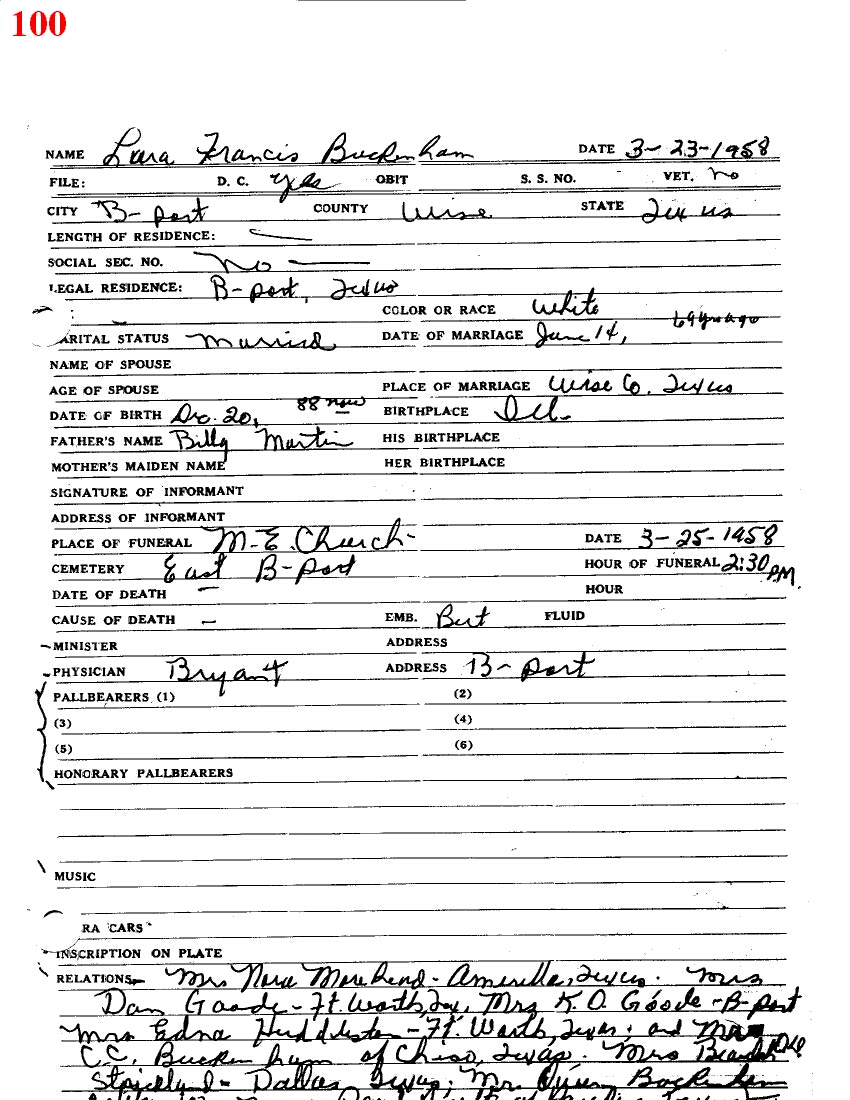 100
NAME Lura Francis Buckenham DATE 3-23-1958
FILE: D. C. yes OBIT S. S. NO. VET. no
CITY B-port COUNTY Wise STATE Texas
LENGTH OF RESIDENCE:
SOCIAL SEC. NO. No
LEGAL RESIDENCE: B-port, Texas
COLOR OR RACE White
ARITAL STATUS Married DATE OF MARRIAGE June 14, 69 yrs ago
NAME OF SPOUSE
AGE OF SPOUSE PLACE OF MARRIAGE Wise Co. Texas
DATE OF BIRTH Dec. 20, 88 now BIRTHPLACE Ill.
FATHER'S NAME Billy Martin HIS BIRTHPLACE
MOTHER'S MAIDEN NAME HER BIRTHPLACE
SIGNATURE OF INFORMANT
ADDRESS OF INFORMANT
PLACE OF FUNERAL M.E. Church- DATE 3-25-1958
CEMETERY East B-port HOUR OF FUNERAL 2:30 PM.
DATE OF DEATH — HOUR
CAUSE OF DEATH — EMB. Burt FLUID
MINISTER ADDRESS
PHYSICIAN Bryant ADDRESS B-port
PALLBEARERS (1) (2)
(3) (4)
(5) (6)
HONORARY PALLBEARERS
MUSIC
RA CARS
INSCRIPTION ON PLATE
RELATIONS Mrs Nora Morehead - Amarillo, Texas. Mrs
Dan Goode - Ft. Worth, Tex, Mrs K. O. Goode - B-port
Mrs Edna Huddleston - Ft. Worth, Texas; and
C.C. Buckenham of Chico, Texas. Mrs
Strickland - Dallas Texas; Mr. Buckenham